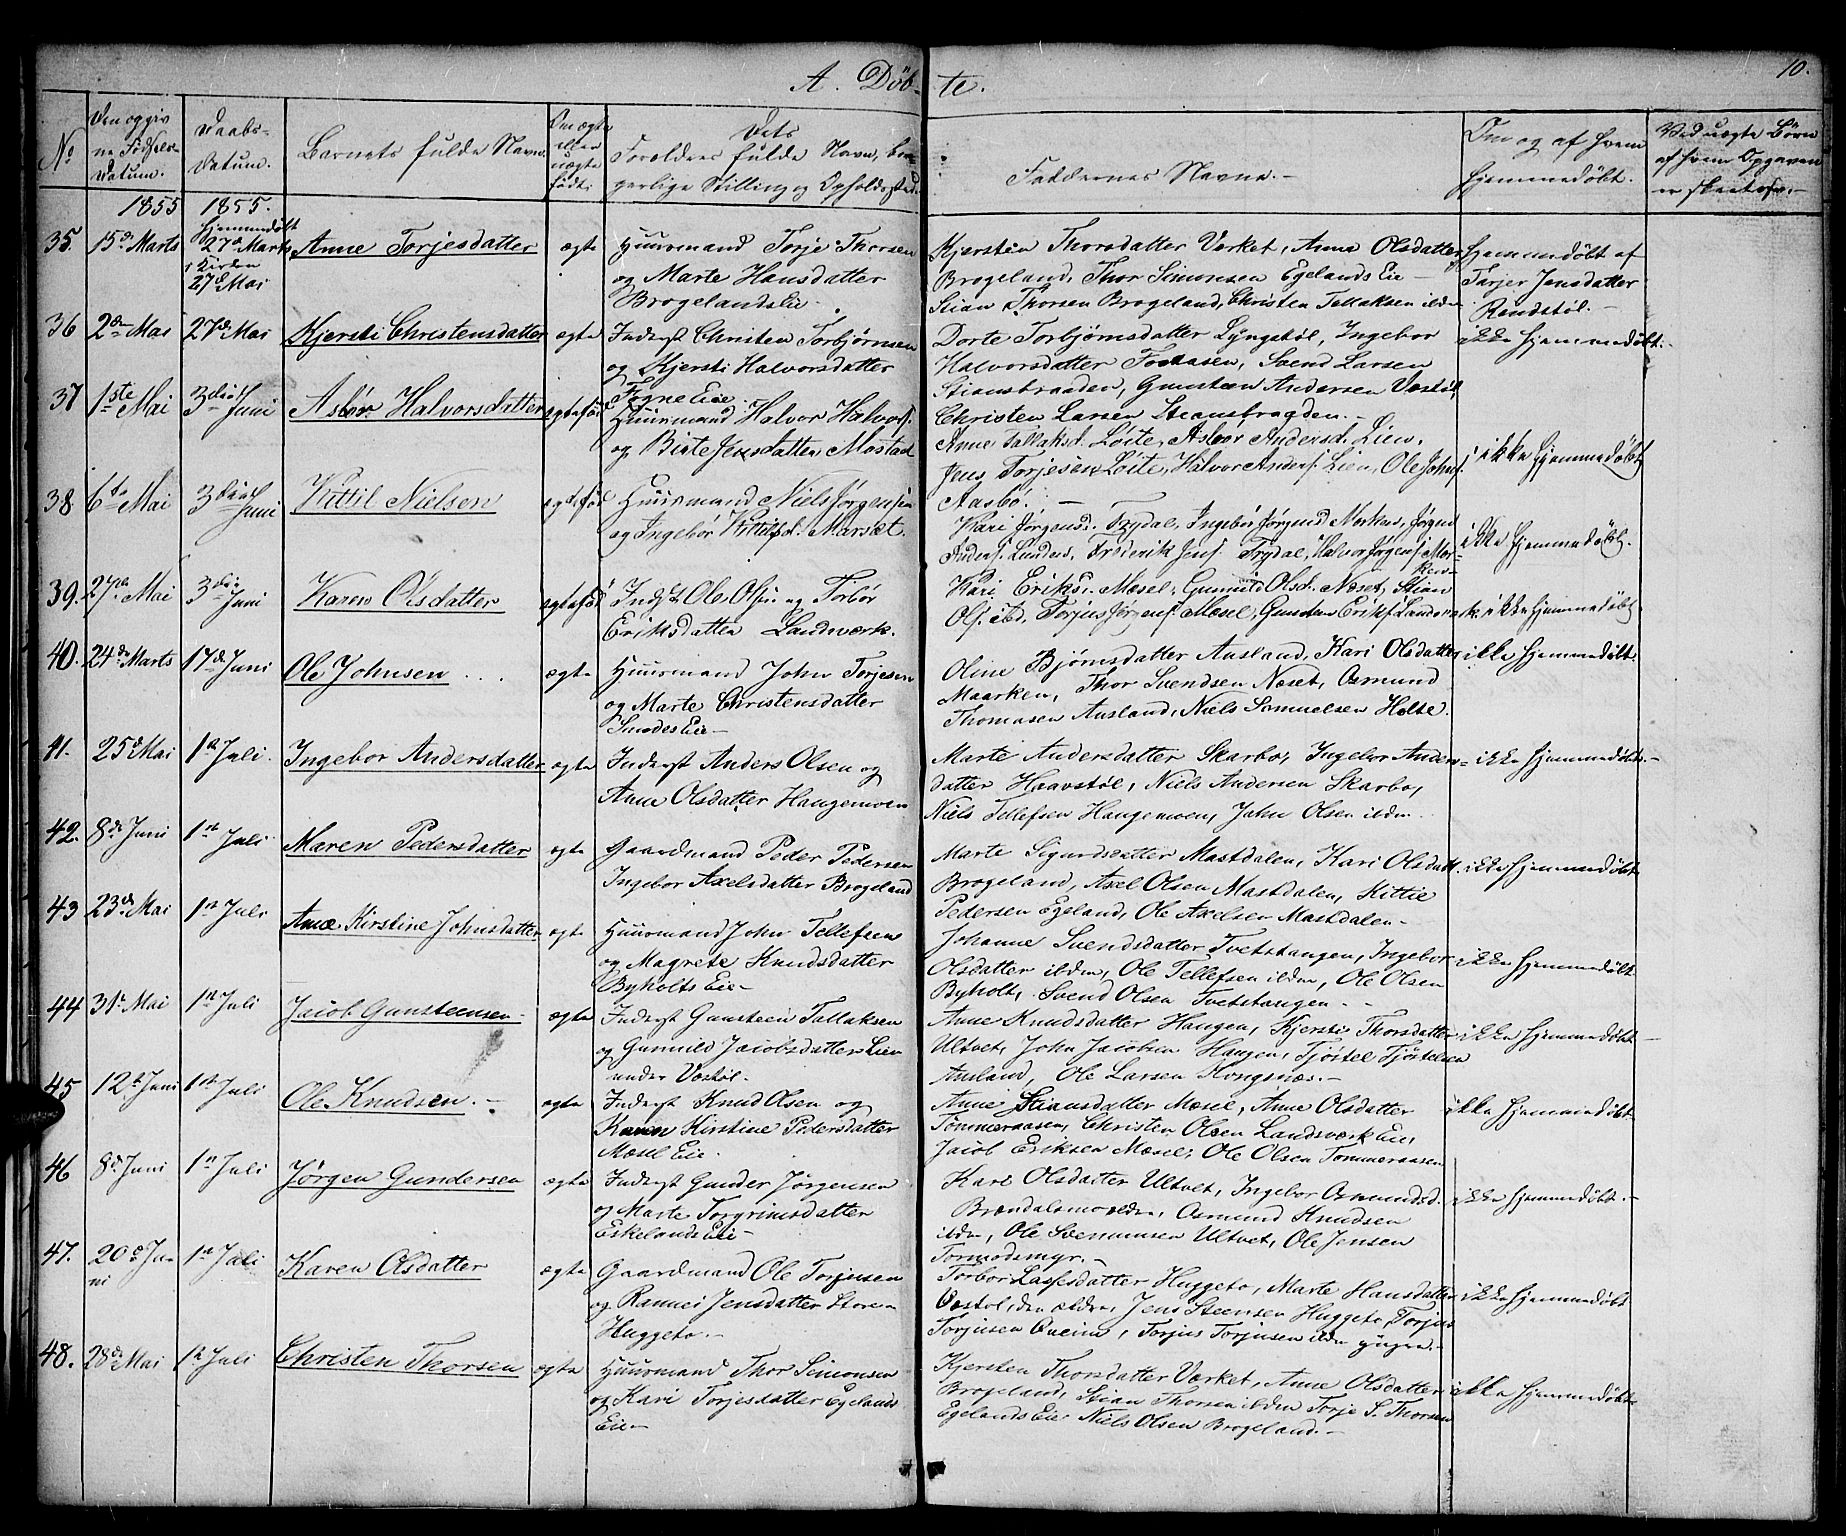 A. Döb-te.
10.
No
Den opgivne Fødsels-Datum.
Daabs-Datum.
Barnets fulde Navn.
Om ægte eller uægte født.
Dets Forældres fulde Navn, borgerlige Stilling og Opholdssted.
Faddernes Navne.-
Om og af hvem hjemmedøbt.
Ved uægte Børn af hvem Opgaven er skeet osv.-
1855 1855.
35. 15d Marts Hjemmedøbt 27d Marts i Kirken 27d Mai Anne Torjesdatter ægte Huusmand Torje Thorsen
og Marte Hansdatter
Brogelands Eie.
Kjersten Thorsdatter Verket, Anne Olsdatter
Brogeland, Thor Simonsen Egelands Eie
Stian Thorsen Brogeland, Christen Tellaksen ildn
hjemmedøbt af
Tarjer Jensdatter
Rendstøl.
36 2den Mai 27de Mai Kjersti Christensdatter ægte Inderst Christen Torbjørnsen
og Kjersti Halvorsdatter
Fogne Eie.
Dorte Torbjørnsdatter Lyngstøl, Ingebor
Halvorsdatter Fosaasen, Svend Larsen
Stiansbraaden, Gunsteen Andersen Væstøl,
Christen Larsen Steansbragden.-
ikke hjemmedøbt.
37 1ste Mai 3die Juni Asbør Halvorsdatter ægtefød Huusmand Halvor Halvors.
og Birte Jensdatter Mostad
Anne Tallaksd. Løite, Asbør Andersd. Lien,
Jens Torjesen Løite, Halvor Anders. Lien, Ole Johns.
Aasbø. -
ikke hjemmedøbt
38 6te Mai 3die Juni Kittil Nielsen ægtefød Huusmand Niels Jørgensen
og Ingebør Kittilsd. Marsæt.
Kari Jørgensd. Frydal, Ingebør Jørgensd Morken, Jørgen
Anders. Lunden, Frederik Jens. Frydal, Halvor Jørgens. Mor-
ken
ikke hjemmedøbt.
39. 27de Mai 3die Juni Karen Olsdatter ægtefød Indst. Ole Ols. og Torbør
Eriksdatter Landsværk.
Kari Eriksd. Mæsel, Gunnild Olsd. Næset, Stian
Ols. ibd, Torjus Jørgens. Mæsel, Gunder Eriks. Landsværk.
ikke hjemmedøbt
40. 24de Marts 17de Juni Ole Johnsen ... ægte Huusmand John Torjesen
og Marte Christensdatter
Sundes Eie-
Oline Bjørnsdatter Ausland, Kari Olsdatter
Maarken, Thor Svendsen Næset, Osmund
Thomasen Ausland, Niels Samuelsen Holte.
ikke hjemmedøbt
41. 25d Mai 1st Juli. Ingebor Andersdatter ægte Inderst Anders Olsen og
Anne Olsdatter Haugemoen
Marte Andersdatter Skarbo, Ingebor Anders-
datter Haavstøl, Niels Andersen Skarbo,
Niels Tellefsen Haugemoen, John Olsen ildn.
ikke hjemmedøbt.-
42. 8de Juni 1st Juli Maren Pedersdatter ægte Gaardmand Peder Pedersen
Ingebor Axelsdatter Brogeland
Marte Sigurdsdatter Mastdalen, Kari Olsdatt.
Brogeland, Axel Olsen Mastdalen, Kittie
Pedersen Egeland, Ole Axelsen Mastdalen-
ikke hjemmedøbt
43 23de Mai 1st Juli Anne Kirstine Johnsdatter ægte Huusmand John Tellefsen
og Magrete Knudsdatter
Byholts Eie-
Johanne Svendsdatter Tvetstangen, Ingebor
Olsdatter ildn, Ole Tellefsen ildn, Ole Olsen
Byholt, Svend Olsen Tvetstangen - -
ikke hjemmedøbt
44 31t Mai 1st Juli Jacob Gunsteensen ægte Inderst Gunsteen Tallaksen
og Gunnild Jacobsdatter Lien
under Væstøl.
Anne Knudsdatter Haugen, Kjersti Thorsdatter
Ultvet, John Jacobsen Haugen, Tjøstel Tjøstelsen
Ausland, Ole Larsen Kongsnæs.-
ikke hjemmedøbt
45 12te Juni 1st Juli Ole Knudsen.- ægte Inderst Knud Olsen og
Karen Kirstine Pedersdatter
Mæsel Eie.
Anne Stiansdatter Mæsel, Anne Olsdatter
Tommeraasen, Christen Olsen Landsværk Eie,
Jacob Eriksen Mæsel, Ole Olsen Tommeraasen
ikke hjemmedøbt
46 8de Juni 1st Juli Jørgen Gundersen ægte Inderst Gunder Jørgensen
og Marte Torgrimsdatter
Eskelands Eie-
Kari Olsdatter Ultvet, Ingebor Osmundsd.
Brændalsmo ildn, Osmund Knudsen
ildn, Ole Svenumsen Ultvet, Ole Jensen
Tormodsmyr.-
ikke hjemmedøbt.-
47. 20d Juni 1st Juli Karen Olsdatter ægte Gaardmand Ole Torjusen
og Rannei Jensdatter Store
Huggeto.-
Torbor Lassesdatter Huggeto, Marte Hansdatter
Væstøl, den ældre, Jens Steensen Huggeto, Torjus
Torjusen Oveim, Torjus Torjusen ildn yngre.-
ikke hjemmedøbt
48. 28de Mai 1st Juli Christen Thorsen ægte Huusmand Thor Simonsen
og Kari Torjesdatter Egelands
Eie-
Kjersten Thorsdatter Værket, Anne Olsdatter
Brogeland, Stian Thorsen ildn Torje S. Thorsen
Egelands Eie Niels Olsen Brogeland.-
ikke hjemmedøbt